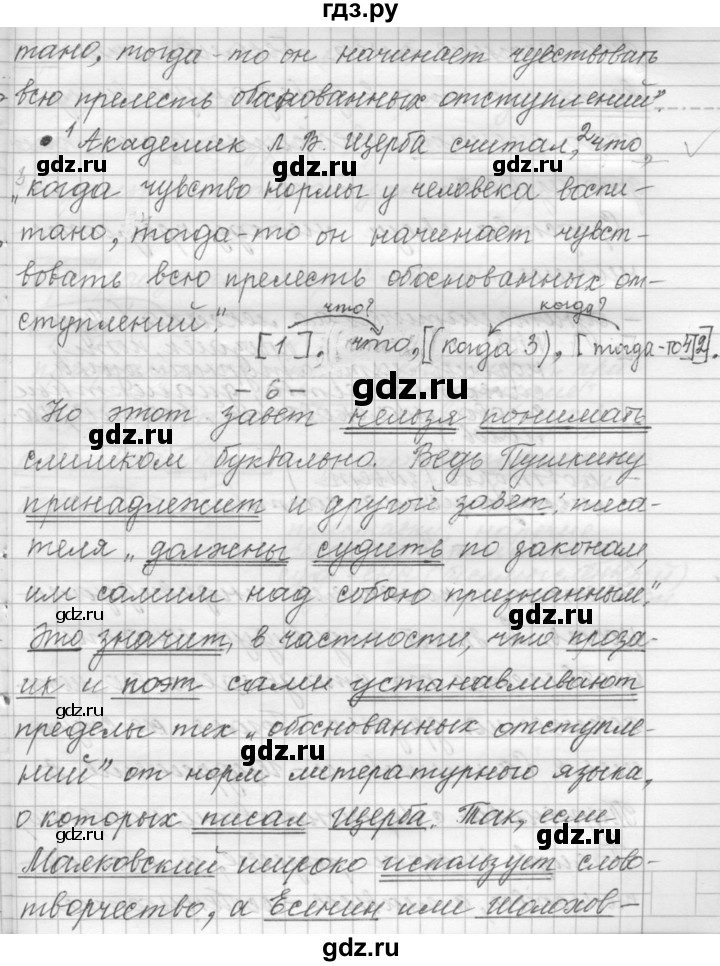 гдз.ру
тано, тогда-то он начинает чувствовать
всю прелесть обоснованных отступлений".
• 1 Академик Л. В. Щерба считал, 2 что,
gdz.ru gdz.ru
3 „когда чувство нормы у человека воспи-
тано, тогда-то он начинает чувст-
gdz.ru gdz.ru
вовать всю прелесть обоснованных от-
ступлений".
что? когда?
[1], что, [(когда 3), [тогда-то 4] 2].
gdz.ru
– 6 –
Но этот завет нельзя понимать
gdz.ru gdz.ru
слишком буквально. Ведь Пушкину
принадлежит и другой завет: писа-
теля „должны судить по законам,
gdz.ru
им самим над собою признанным".
gdz.ru gdz.ru
Это значит, в частности, что проза-
ик и поэт сами устанавливают
gdz.ru
пределы тех „обоснованных отступле-
gdz.ru
ний" от норм литературного языка,
о которых писал Щерба. Так, если
gdz.ru gdz.ru
Маяковский широко использует слово-
творчество, а Есенин или Шолохов –
gdz.ru gdz.ru
gdz.ru